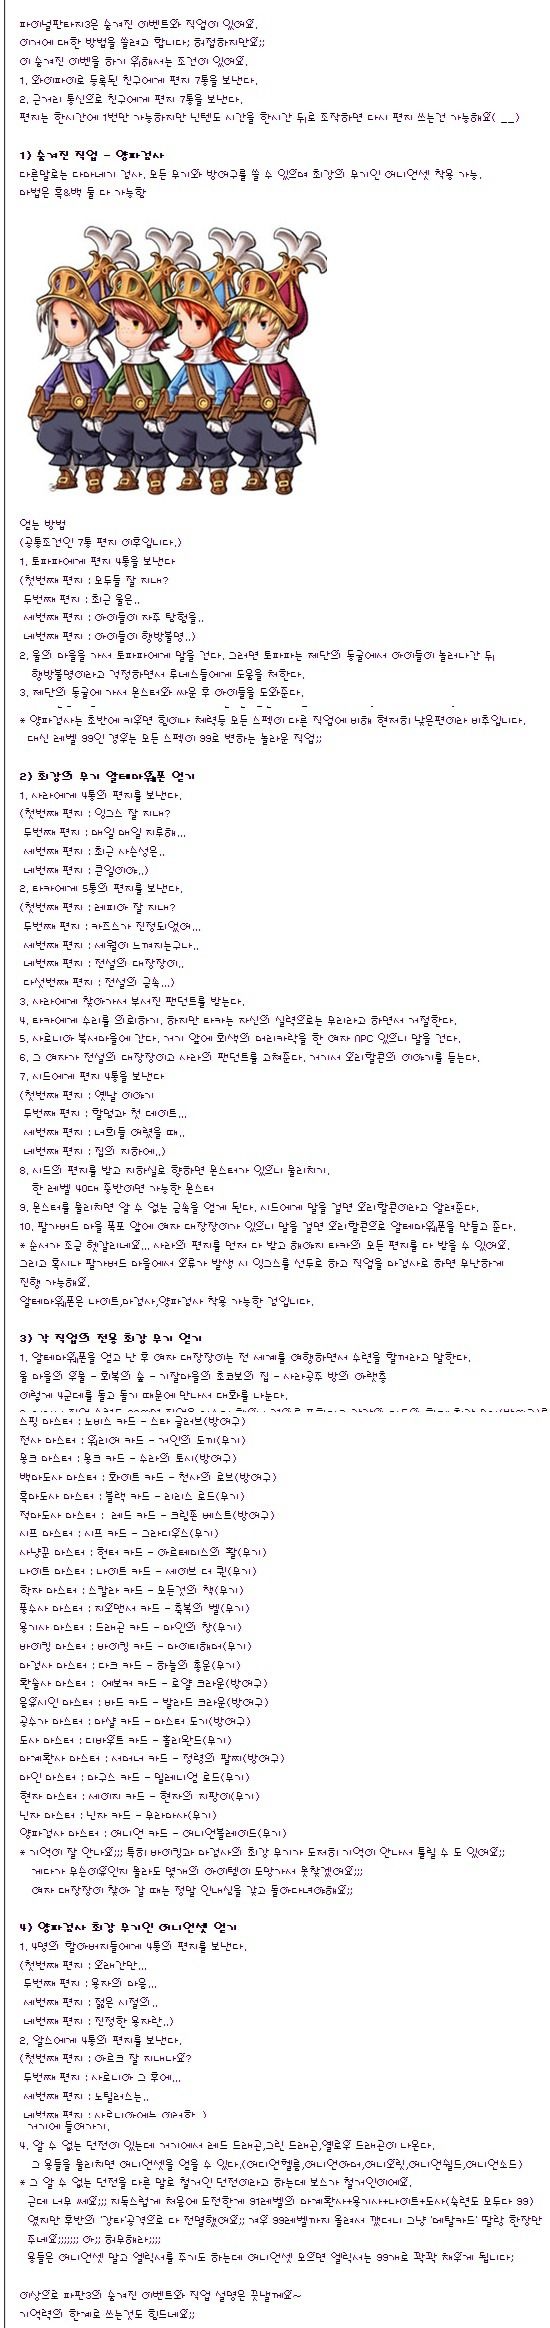 파이널판타지3은 숨겨진 이벤트와 직업이 있어요.
이거에 대한 방법을 쓸려고 합니다; 허접하지만요;;
이 숨겨진 이벤을 하기 위해서는 조건이 있어요.
1. 와이파이로 등록된 친구에게 편지 7통을 보낸다.
2. 근거리 통신으로 친구에게 편지 7통을 보낸다.
편지는 한시간에 1번만 가능하지만 닌텐도 시간을 한시간 뒤로 조작하면 다시 편지 쓰는건 가능해요( __)
1) 숨겨진 직업 - 양파검사
다른말로는 다마네기 검사. 모든 무기와 방어구를 쓸 수 있으며 최강의 무기인 어니언셋 착용 가능.
마법은 흑&백 둘 다 가능함
얻는 방법
(공통조건인 7통 편지 이후입니다.)
1. 토파파에게 편지 4통을 보낸다
(첫번째 편지 : 모두들 잘 지내?
두번째 편지 : 최근 울은..
세번째 편지 : 아이들이 자주 탐험을..
네번째 편지 : 아이들이 행방불명..)
2. 울의 마을을 가서 토파파에게 말을 건다. 그러면 토파파는 제단의 동굴에서 아이들이 놀러나간 뒤
행방불명이라고 걱정하면서 루네스들에게 도움을 청한다.
3. 제단의 동굴에 가서 몬스터와 싸운 후 아이들을 도와준다.
* 양파검사는 초반에 키우면 힘이나 체력등 모든 스펙이 다른 직업에 비해 현저히 낮은편이라 비추입니다.
대신 레벨 99인 경우는 모든 스펙이 99로 변하는 놀라운 직업;;
2) 최강의 무기 알테마웨폰 얻기
1. 사라에게 4통의 편지를 보낸다.
(첫번째 편지 : 잉그스 잘 지내?
두번째 편지 : 매일 매일 지루해...
세번째 편지 : 최근 사슨성은..
네번째 편지 : 큰일이야..)
2. 타카에게 5통의 편지를 보낸다.
(첫번째 편지 : 레피아 잘 지내?
두번째 편지 : 카즈스가 진정되었어...
세번째 편지 : 세월이 느껴지는구나..
네번째 편지 : 전설의 대장장이..
다섯번째 편지 : 전설의 금속...)
3. 사라에게 찾아가서 부서진 팬던트를 받는다.
4. 타카에게 수리를 의뢰하기. 하지만 타카는 자신의 실력으로는 무리라고 하면서 거절한다.
5. 사로니아 북서마을에 간다. 거기 앞에 회색의 머리카락을 한 여자 NPC 있으니 말을 건다.
6. 그 여자가 전설의 대장장이고 사라의 팬던트를 고쳐준다. 거기서 오리할콘의 이야기를 듣는다.
7. 시드에게 편지 4통을 보낸다
(첫번째 편지 : 옛날 이야기
두번째 편지 : 할멈과 첫 데이트...
세번째 편지 : 너희들 어렸을 때..
네번째 편지 : 집의 지하에..)
8. 시드의 편지를 받고 지하실로 향하면 몬스터가 있으니 물리치기.
한 레벨 40대 중반이면 가능한 몬스터
9. 몬스터를 물리치면 알 수 없는 금속을 얻게 된다. 시드에게 말을 걸면 오리할콘이라고 알려준다.
10. 팔가버드 마을 폭포 앞에 여자 대장장이가 있으니 말을 걸면 오리할콘으로 알테마웨폰을 만들고 준다.
* 순서가 조금 헷갈리네요... 사라의 편지를 먼저 다 받고 해야지 타카의 모든 편지를 다 받을 수 있어요.
그리고 혹시나 팔가버드 마을에서 오류가 발생 시 잉그스를 선두로 하고 직업을 마검사로 하면 무난하게
진행 가능해요.
알테마웨폰은 나이트,마검사,양파검사 착용 가능한 검입니다.
3) 각 직업의 전용 최강 무기 얻기
1. 알테마웨폰을 얻고 난 후 여자 대장장이는 전 세계를 여행하면서 수련을 할꺼라고 말한다.
울 마을의 우물 - 회복의 숲 - 기잘마을의 초코보의 집 - 사라공주 방의 아랫층
이렇게 4군데를 돌고 돌기 때문에 만나서 대화를 나눈다.
스핑 마스터 : 노비스 카드 - 스타 글러브(방어구)
전사 마스터 : 워리어 카드 - 거인의 도끼(무기)
몽크 마스터 : 몽크 카드 - 수라의 토시(방어구)
백마도사 마스터 : 화이트 카드 - 천사의 로브(방어구)
흑마도사 마스터 : 블랙 카드 - 리리스 로드(무기)
적마도사 마스터 : 레드 카드 - 크림존 베스트(방어구)
시프 마스터 : 시프 카드 - 그라디우스(무기)
사냥꾼 마스터 : 헌터 카드 - 아르테미스의 활(무기)
나이트 마스터 : 나이트 카드 - 세이브 더 퀸(무기)
학자 마스터 : 스칼라 카드 - 모든것의 책(무기)
풍수사 마스터 : 지오맨서 카드 - 축복의 벨(무기)
용기사 마스터 : 드래곤 카드 - 마인의 창(무기)
바이킹 마스터 : 바이킹 카드 - 마이티해머(무기)
마검사 마스터 : 다크 카드 - 하늘의 총운(무기)
환술사 마스터 : 에보커 카드 - 로얄 크라운(방어구)
음유시인 마스터 : 바드 카드 - 발라드 크라운(방어구)
공수가 마스터 : 마샬 카드 - 마스터 도기(방어구)
도사 마스터 : 디바우트 카드 - 홀리완드(무기)
마계환사 마스터 : 서머너 카드 - 정령의 팔찌(방어구)
마인 마스터 : 마구스 카드 - 밀레니엄 로드(무기)
현자 마스터 : 세이지 카드 - 현자의 지팡이(무기)
닌자 마스터 : 닌자 카드 - 무라마사(무기)
양파검사 마스터 : 어니언 카드 - 어니언블레이드(무기)
* 기억이 잘 안나요;;; 특히 바이킹과 마검사의 최강 무기가 도저히 기억이 안나서 틀릴 수 도 있어요;;
게다가 무슨이유인지 몰라도 몇개의 아이템이 도망가서 못찾겠어요;;;
여자 대장장이 찾아 갈 때는 정말 인내심을 갖고 돌아다녀야해요;;
4) 양파검사 최강 무기인 어니언셋 얻기
1. 4명의 할아버지들에게 4통의 편지를 보낸다.
(첫번째 편지 : 오래간만...
두번째 편지 : 용자의 마음...
세번째 편지 : 젊은 시절의..
네번째 편지 : 진정한 용자란..)
2. 알스에게 4통의 편지를 보낸다.
(첫번째 편지 : 아르크 잘 지내나요?
두번째 편지 : 사로니아 그 후에...
세번째 편지 : 노틸러스는..
네번째 편지 : 사로니아에는 이러한..)
거기에 들어가기.
4. 알 수 없는 던전이 있는데 거기에서 레드 드래곤,그린 드래곤,옐로우 드래곤이 나온다.
그 용들을 물리치면 어니언셋을 얻을 수 있다.(어니언헬름,어니언아머,어니오릿,어니언쉴드,어니언소드)
* 그 알 수 없는 던전을 다른 말로 철거인 던전이라고 하는데 보스가 철거인이에요.
근데 너무 쎄요;;; 지독스럽게 처음에 도전한게 91레벨의 마계환사+용기사+나이트+도사(숙련도 모두다 99)
였지만 후반의 '강타'공격으로 다 전멸했어요;; 겨우 99레벨까지 올려서 깼더니 그냥 '메탈카드' 딸랑 한장만
주네요;;;;;;; 아;; 허무해라;;;;
용들은 어니언셋 말고 엘릭서를 주기도 하는데 어니언셋 모으면 엘릭서는 99개로 꽉꽉 채우게 됩니다;
이상으로 파판3의 숨겨진 이벤트와 직업 설명은 끗낼께요~
기억력의 한계로 쓰는것도 힘드네요;;